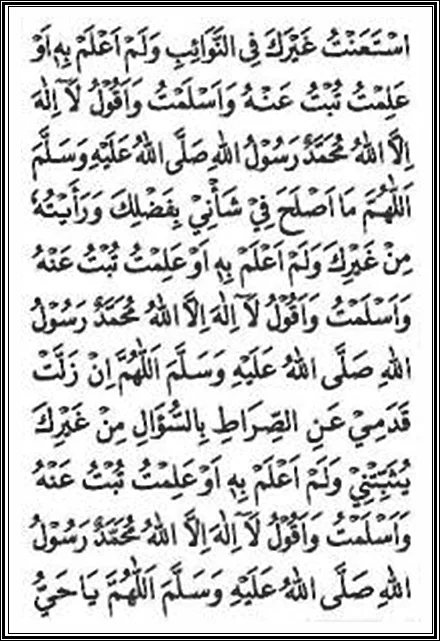 اسْتَعَنْتُ غَيْرَكَ فِى النَّوَآئِبِ وَلَمْ اَعْلَمْ بِهٖ اَوْ
عَلِمْتُ تُبْتُ عَنْهُ وَاَسْلَمْتُ وَاَقُوْلُ لَآ اِلٰهَ
اِلَّا اللهُ مُحَمَّدٌ رَسُوْلُ اللهِ صَلَّى اللهُ عَلَيْهِ وَسَلَّمَ
اَللّٰهُمَّ مَا اَصْلَحَ فِيْ شَأْنِيْ بِفَضْلِكَ وَرَأَيْتُهٗ
مِنْ غَيْرِكَ وَلَمْ اَعْلَمْ بِهٖ اَوْ عَلِمْتُ تُبْتُ عَنْهُ
وَاَسْلَمْتُ وَاَقُوْلُ لَآ اِلٰهَ اِلَّا اللهُ مُحَمَّدٌ رَسُوْلُ
اللهِ صَلَّى اللهُ عَلَيْهِ وَسَلَّمَ اَللّٰهُمَّ اِنْ زَلَّتْ
قَدَمِيْ عَنِ الصِّرَاطِ بِالسُّؤَالِ مِنْ غَيْرِكَ
يُثَبِّتْنِيْ وَلَمْ اَعْلَمْ بِهٖ اَوْ عَلِمْتُ تُبْتُ عَنْهُ
وَاَسْلَمْتُ وَاَقُوْلُ لَآ اِلٰهَ اِلَّا اللهُ مُحَمَّدٌ رَسُوْلُ
اللهِ صَلَّى اللهُ عَلَيْهِ وَسَلَّمَ اَللّٰهُمَّ يَا حَيُّ